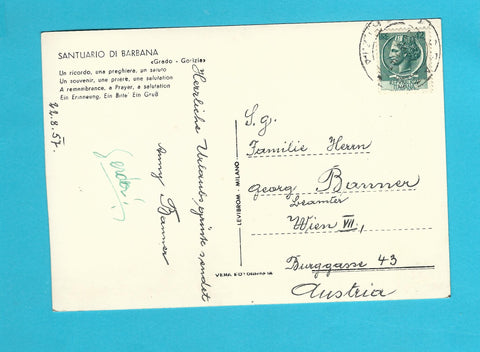 SANTUARIO DI BARBANA
«Grado - Gorizia»
Un ricordo, una preghiera, un saluto
Un souvenir, une prière, une salutation
A remembrance, a Prayer, a salutation
Ein Erinneung, Ein Bite' Ein Gruß
22.8.57.
Herrliche Urlaubsgrüße sendet
Anny Banner
VERA FOTOGRAFIA
MILANO
S.g.
Familie Herrn
Georg Banner
Beamter
Wien VII,
Burggasse 43
Austria